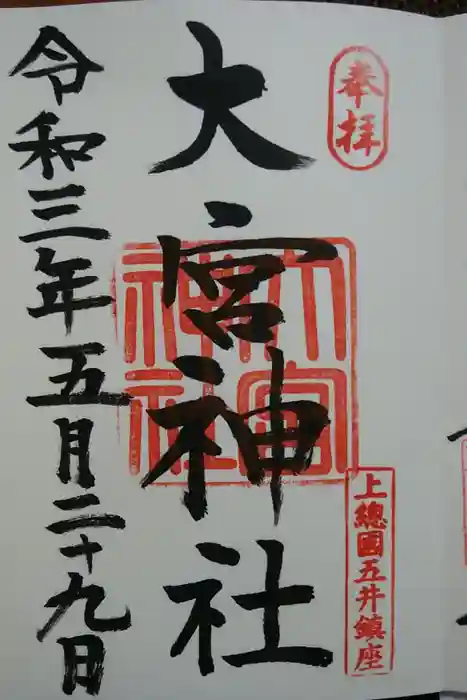 奉拝
上總國五井鎮座
大宮神社
大宮神社
令和三年五月二十九日